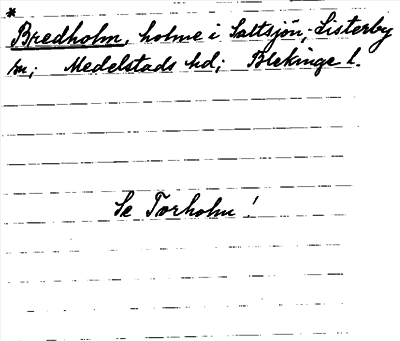 *
Bredholm, holme i Saltsjön, Listerby
sn; Medelstads hd; Blekinge l.
Se Torholm!